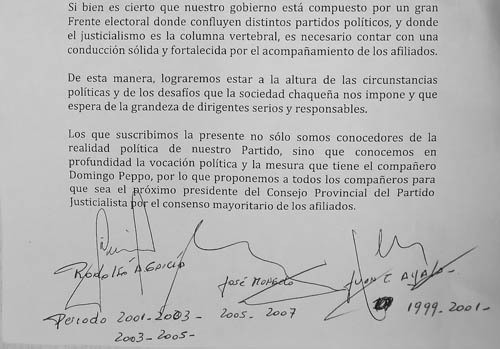 Si bien es cierto que nuestro gobierno está compuesto por un gran
Frente electoral donde confluyen distintos partidos políticos, y donde
el justicialismo es la columna vertebral, es necesario contar con una
conducción sólida y fortalecida por el acompañamiento de los afiliados.
De esta manera, lograremos estar a la altura de las circunstancias
políticas y de los desafíos que la sociedad chaqueña nos impone y que
espera de la grandeza de dirigentes serios y responsables.
Los que suscribimos la presente no sólo somos conocedores de la
realidad política de nuestro Partido, sino que conocemos en
profundidad la vocación política y la mesura que tiene el compañero
Domingo Peppo, por lo que proponemos a todos los compañeros para
que sea el próximo presidente del Consejo Provincial del Partido
Justicialista por el consenso mayoritario de los afiliados.
RODOLFO A
JOSÉ
JUAN C AYALA
Periodo 2001-2003-
2005-2007
1999-2001-
2003-2005-